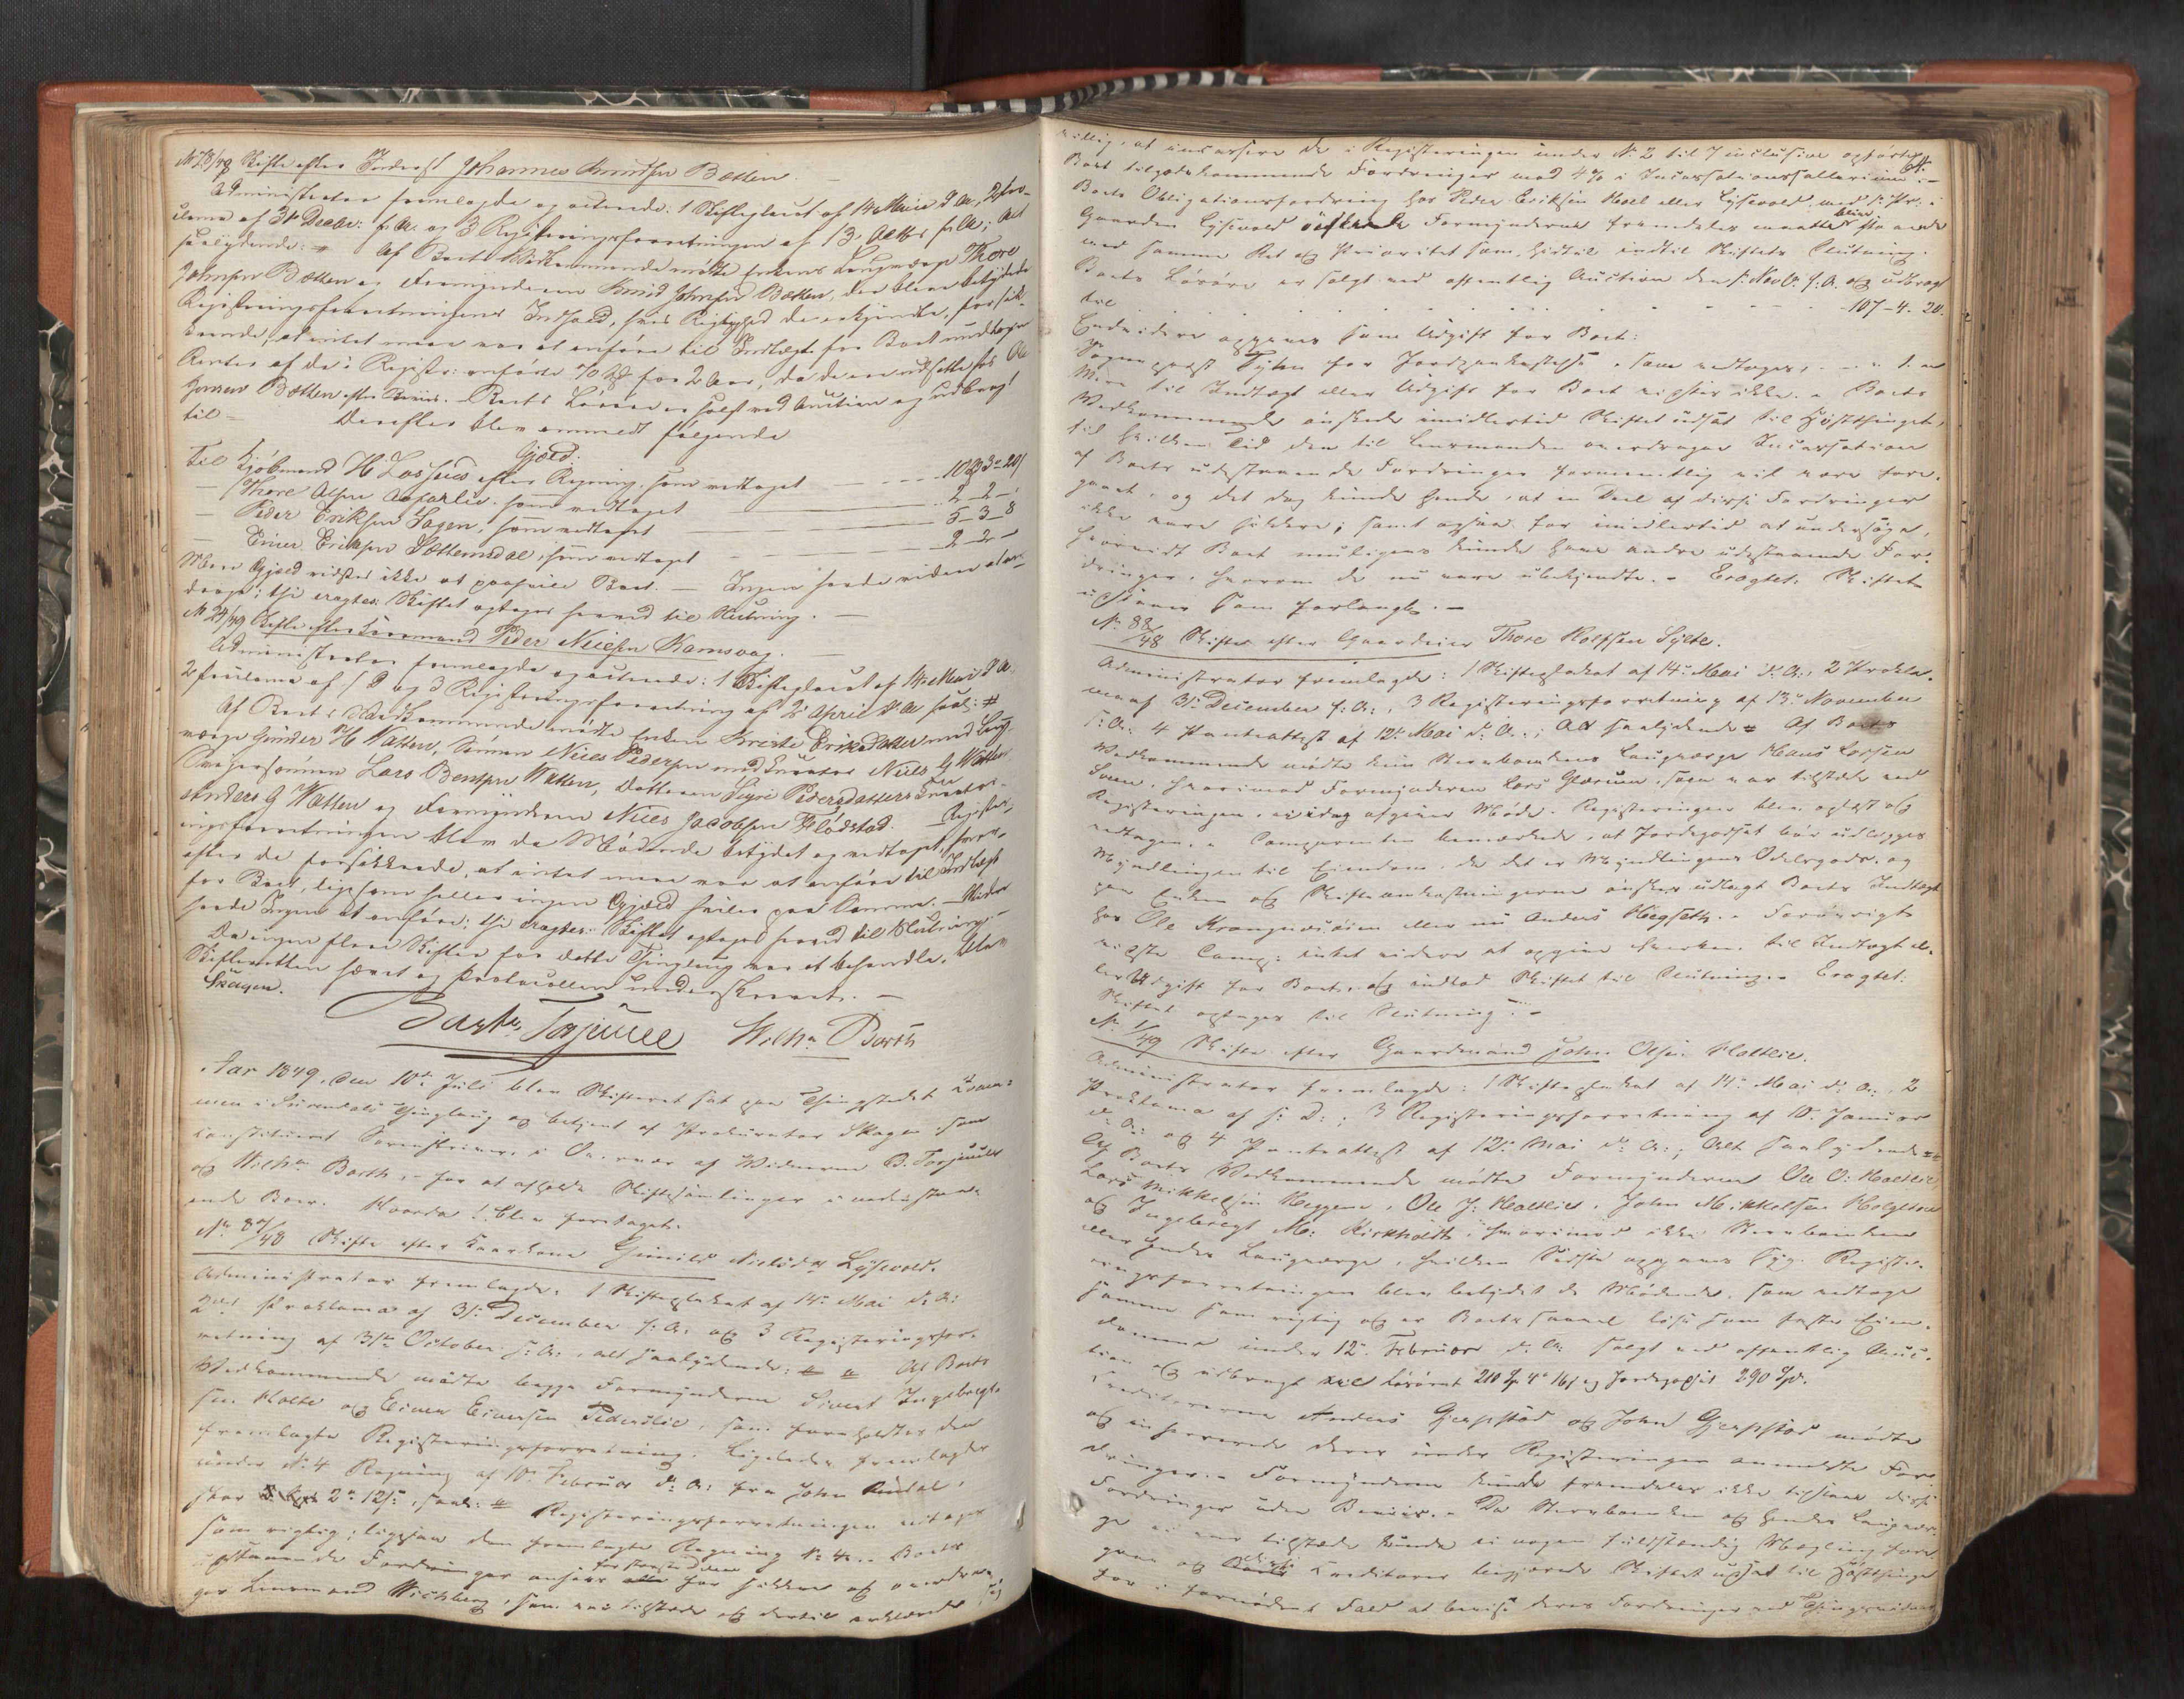 N 73/48 Skifte efter Inderst Johannes Knudsen Bætten.
Administrator fremlagde og acterede: 1 Skifteplacat af 14 Mai d. A., 2 Pro-
clama af 31 Decbr: f. A. og 3 Registreringsforretningen af 13 Octbr f. A.; Alt
saalydende: Af Boets Vedkommende mødte Enkens Laugværge Thore
Johnsen Bætten og Formynderen Knud Johnsen Bætten, der blev betydede
Registreringsforretningens Indhold, hvis Rigtighed de erkjendte, forsik-
krende, at intet mere var at anføre til Indtægt for Boet undtagen
Renter af de i Registr: anførte for 2 Aar, da de ere udsatte hos Ole
Jonsen Bætten efter Beviis. Boets Løsøre er solgt ved Auction og udbragt
til Derefter blev anmeldt følgende
Gjæld.
Til Kjøbmand H Lossius efter Regning, som vedtaget 10 3 20
Thore Olsen Aasarlie, som vedtaget 2 2
Peder Eriksen Sagen, som vedtaget 5 3 8
Einer Eriksen Sættemsdal, som vedtaget 2 2
Mere Gjæld vidstes ikke at paahvile Boet. Ingen havde videre at an-
drage; thi eragtes: Skiftet optages herved til Slutning.
N 24/49 Skifte efter Kaarmand Peder Nielsen Ramsvag.
Administrator fremlagde og acterede: 1 Skifteplacat af 14 Mai d. A.
2 Proclama af s. D og 3 Registreringsforretning af 2 April d. A saal:
Af Boets Vedkommende mødte Enken Kirste Eriksdatter med Laug-
værge Gunder H Vatten, Sønnen Niels Pedersen med Curator Niels G Vatten
Svigersønnen Lars Bentsen Vatten, Datteren Sigri Pedersdatters Curator
Anders G Vatten og Formynderen Niels Jacobsen Flødstad. Registre-
ringsforretningen blev de Mødende betydet og vedtaget, hvor-
efter de forsikkrede, at intet mere var at anføre til Indtægt
for Boet, ligesom heller ingen Gjæld hviler paa Samme. Videre
havde Ingen at anføre; thi eragtes: Skiftet optages herved til Slutning.
Da ingen flere Skifter for dette Thinglaug var at behandle, blev
Skifteretten hævet og Protocollen underskrevet.
Skagen.
Torjuul Wilhm Barth
Aar 1849, den 10de Juli blev Skifteret sat paa Thingstedet
i Surendals Thinglaug og betjent af Prokurator Skagen som
konstitueret Sorenskriver, i Overvær af Vidnerne B. Torjuul
og Wilhm Barth, for at afholde Skiftesamlinger i nedenstaa-
ende Boer. Hvorda! blev foretaget:
No 87/48 Skifte efter Kaarkone Gunild Nielsdtr Lysevold.
Administrator fremlagde: 1 Skifteplakat af 14 Mai d. A:
2 Proklama af 31 December f: A: og 3 Registeringsfor-
retning af 31te October f: A:, alt saalydende: Af Boets
Vedkommende mødte begge Formynderne Sivert Ingebregt-
sen Holte og Einer Einersen Pederslie, som foreholdtes den
fremlagte Registeringsforretning. Ligeledes fremlagdes
under N. 4 Regning af 10 Februar d: A: fra John
stor 2 12, saal: Registeringsforretningen vedtoges
som rigtig; ligesaa den fremlagte Regning No 4. Boets
udstaaende Fordringer ansees for sikkre og overdra-
ger Lensmand Wichberg, som var tilstede og dertil erklærede sig
villig, at incassere de i Registeringen under N. 2 til 7 inclusive opførte
64.
Boet tilgodekommende Fordringer mod 4% i Incassationssallarium.
Boets Obligationsfordring hos Peder Eriksen Moel eller Lysevold med 1. Pr: i
Gaarden Lysevold ønskede Formynderne fremdeles maatte blive staaende
med samme Ret og Prioritet som hidtil indtil Skiftets Slutning.
Boets Løsøre er solgt ved offentlig Auction den 1: Novbr. f: A. og udbragt
til 107-4-20.
Endvidere opgaves som Udgift for Boet:
Sognepræst Tyhn for Jordpaakastelse, som vedtoges,
Mere til Indtægt eller Udgift for Boet vidstes ikke. Boets
Vedkommende ønskede imidlertid Skiftet udsat til Høstthinget,
til hvilken Tid den til Lensmanden overdragne Incassation
af Boets udestaaende Fordringer formentlig vil være fore-
gaaet, og det dog kunde hende, at en Deel af disse Fordringer
ikke vare sikkre; samt ogsaa for imidlertid at undersøge,
hvorvidt Boet muligens kunde have andre udestaaende For-
dringer, hvorom de nu vare ubekjendte. Eragtet: Skiftet
udstaaer som forlangt.
No 88/48 Skifte efter Gaardeier Thore Rolfsen Sylte.
Administrator fremlagde: 1 Skifteplakat af 14 Mai d: A:, 2 Prokla-
ma af 31 December f: A:, 3 Registeringsforretning af 13 November
f: A: 4 Panteattest af 12 Mai d: A:; Alt saalydende Af Boets
Vedkommende mødte kun Stervboenkens Laugværge Hans Larsen
Soen, hvorimod Formynderen Lars Glærum, som var tilstede ved
Registeringen, ei idag afgiver Møde. Registeringen blev oplæst og
vedtagen. Comparenten bemærkede, at Jordegodset bør udlægges
Myndlingen til Eiendom, da det er Myndlingens Odelsgods, og
Enken og Skifteomkostningerne ønskes udlagt Boets Indtægt
hos Ole Krangnesøien eller nu Anders Hegseth. Forøvrigt
vidste Comp: intet videre at opgive hverken til Indtægt el-
ler Udgift for Boet, og indlod Skiftet til Slutning. Eragtet:
Skiftet optages til Slutning.
No 1/49 Skifte efter Gaardmand John Olsen Holtlie.
Administrator fremlagde: 1 Skifteplakat af 14 Mai d: A:, 2
Proklama af s: D:, 3 Registeringsforretning af 10 Januar
d: A: og 4 Panteattest af 12 Mai d: A:; Alt saalydende
Af Boets Vedkommende mødte Formynderne Ole O: Holtlie,
Lars Mikkelsen Heggem, Ole J: Holtlie, John Mikkelsen
og Ingebregt M: Kirkholdt, hvorimod ikke Stervboenken
eller hendes Laugværge, hvilken Sidste opgaves syg. Registe-
ringsforretningen blev betydet de Mødende, som vedtoge
samme som rigtig og er Boets saavel løse som faste Eien-
domme under 12 Februar d: A: solgt ved offentlig Auc-
tion og udbragt til Løsøret 210 4 16 og Jordegodset 290 Spd.
Creditorerne Anders Gjerpstad og John Gjerpstad mødte
og reserverede deres under Registeringen anmeldte For-
dringer. Formynderne kunde fremdeles ikke tilstaae disse
Fordringer uden Beviis. Da Stervboenken og hendes Laugvær-
ge ei var tilstede kunde ei nogen fuldstændig Mægling fore-
gaae og disse Creditorer begjærede Skiftet udsat til Høstthinget
for i fornødent Fald at bevise deres Fordringer ved Thingsvidne